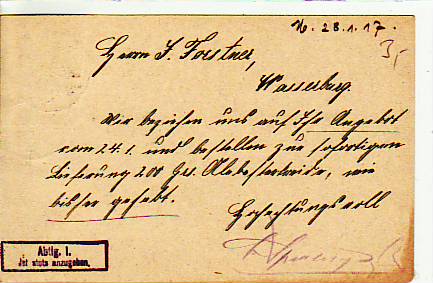 N. 28.1.17.
3,-
Herrn J. Forstner,
Wasserburg.
Wir beziehen uns auf Ihr Angebot
vom 24.1. und bestellen zur sofortigen
Lieferung 200 Grs. Alabasterkreide, wie
bisher gehabt.
Hochachtungsvoll
Abtlg. I.
ist stets anzugeben.